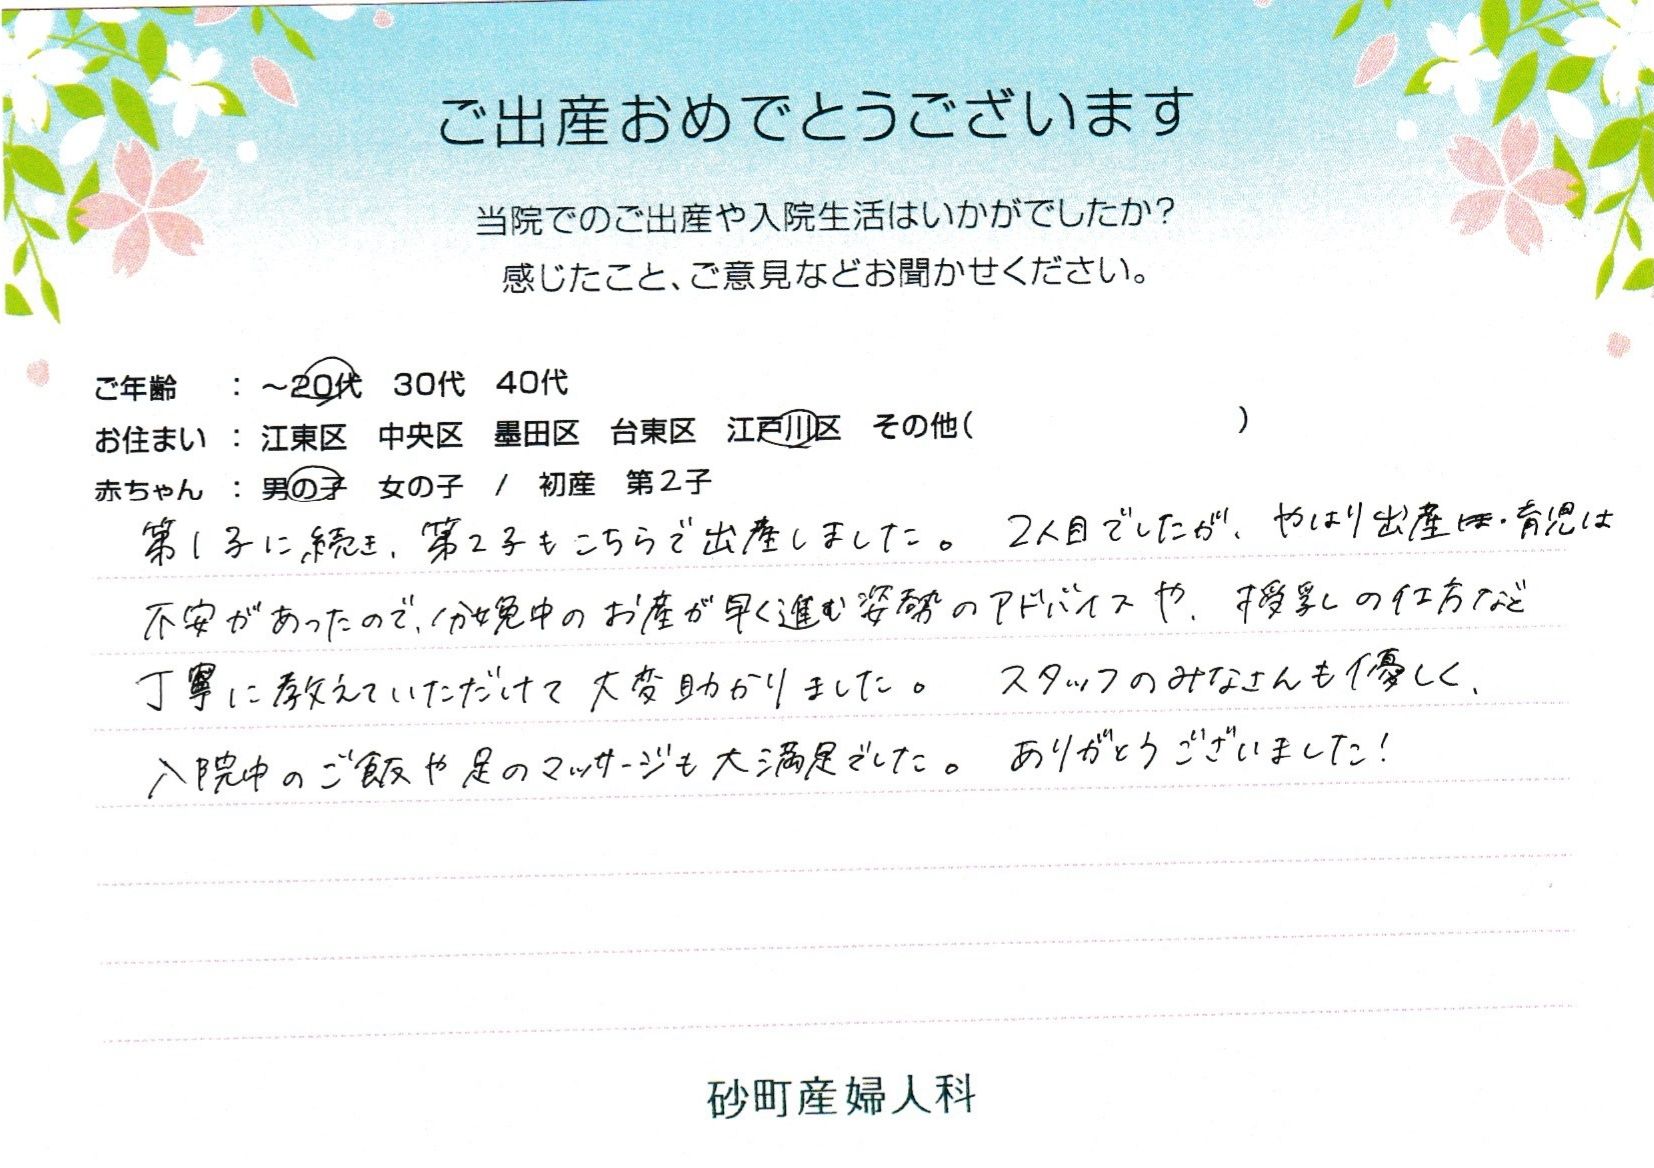 ご出産おめでとうございます
当院でのご出産や入院生活はいかがでしたか?
感じたこと、ご意見などお聞かせください。
ご年齢 : ～20代 30代 40代
お住まい : 江東区 中央区 墨田区 台東区 江戸川区 その他( )
赤ちゃん : 男の子 女の子 / 初産 第2子
第1子に続き、第2子もこちらで出産しました。 2人目でしたが、やはり出産・育児は
不安があったので、分娩中のお産が早く進む姿勢のアドバイスや、授乳の仕方など
丁寧に教えていただけて大変助かりました。 スタッフのみなさんも優しく、
入院中のご飯や足のマッサージも大満足でした。 ありがとうございました!
砂町産婦人科